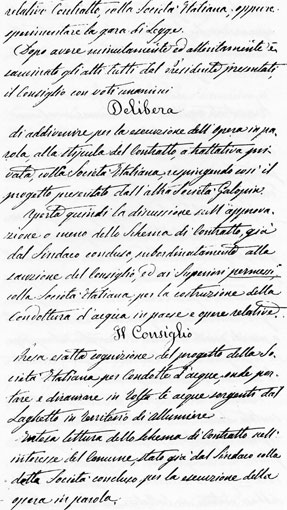 relativo Contratto, colla Società Italiana, oppure
sperimentare la gara di Legge.
Dopo avere minutamente ed attentamente e-
saminato gli atti tutti dal Presidente presentati,
il Consiglio con voti unanimi
Delibera
di addivenire per la esecuzione dell'opera in pa-
rola, alla stipula del Contratto, a trattativa pri-
vata colla Società Italiana, respingendo così il
progetto presentato dall'altra Società Galopin.
Aperta quindi la discussione sull'approva-
zione o meno dello Schema di Contratto, già
dal Sindaco concluso, subordinatamente alla
sanzione del Consiglio, ed ai Superiori permessi
colla Società Italiana, per la costruzione della
Condottura d'acqua in paese e opere relative.
Il Consiglio
Presa esatta cognizione del progetto della So-
cietà Italiana per Condotte d'acqua, onde por-
tare e diramare in Tolfa le acque sorgenti dal
Laghetto in territorio di Allumiere
Intesa lettura dello Schema di Contratto nell'
interesse del Comune, stato già dal Sindaco colla
detta Società concluso per la esecuzione della
opera in parola.